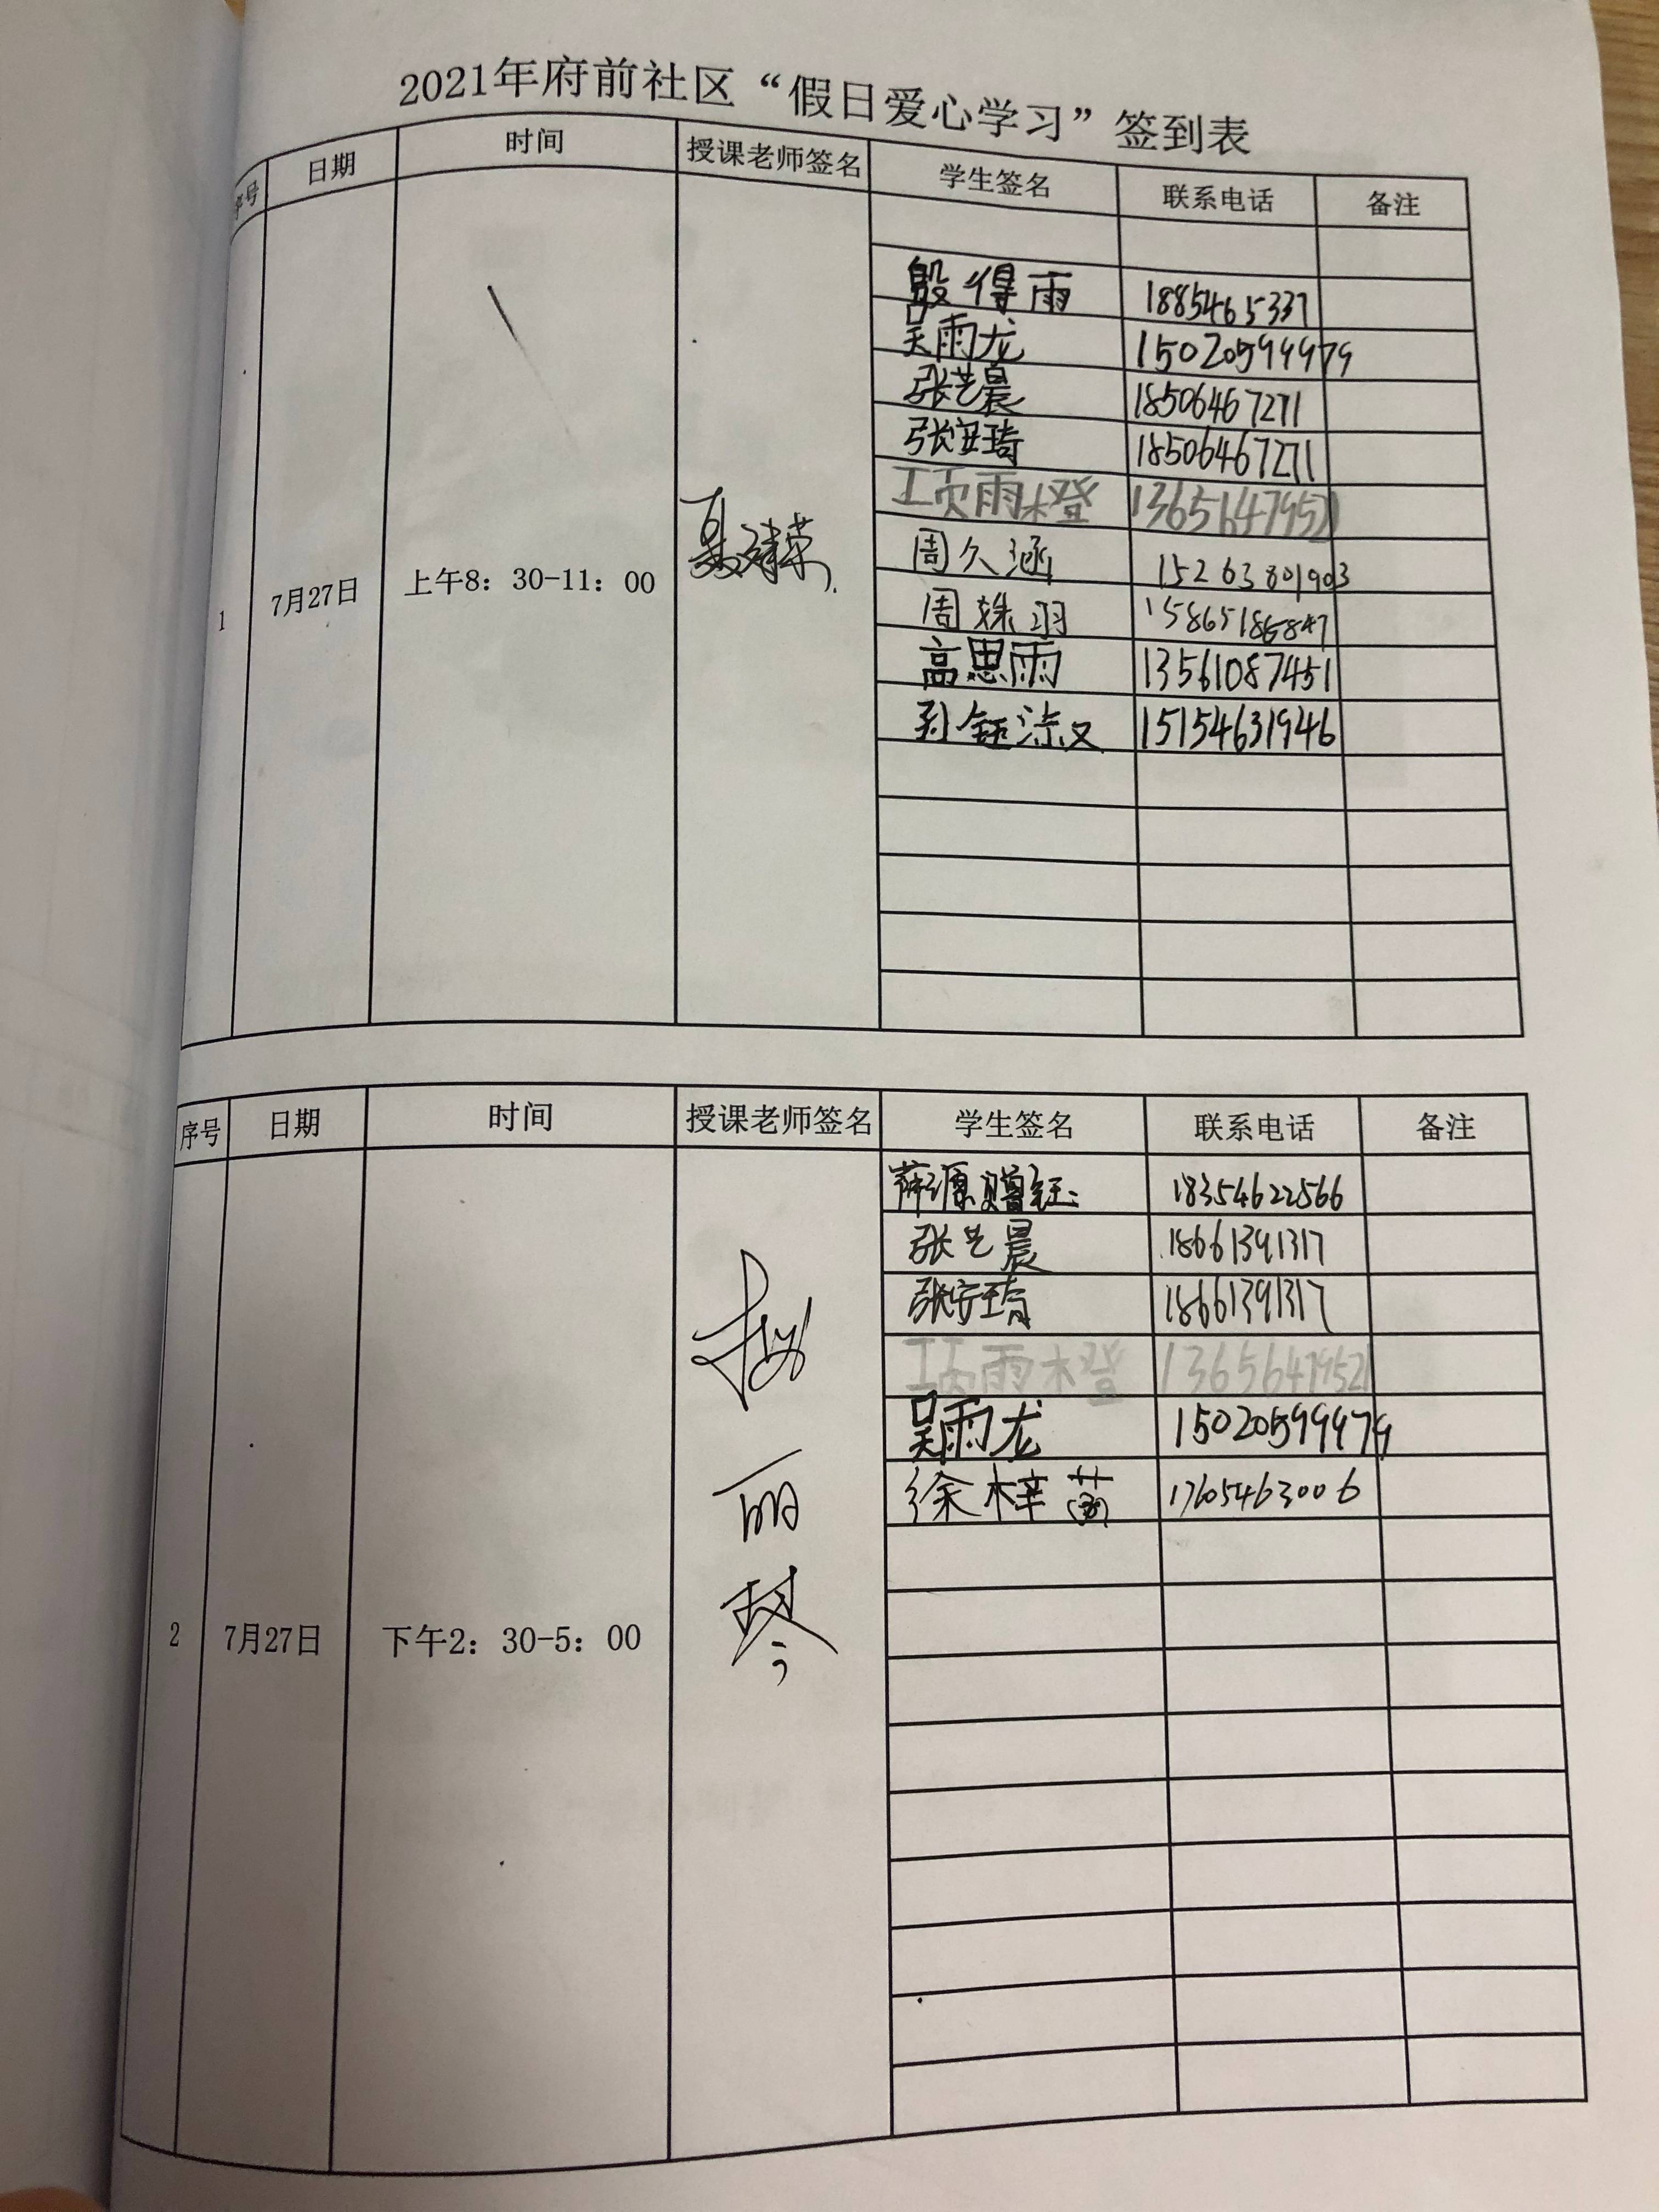 2021年府前社区“假日爱心学习”签到表
序号 日期 时间 授课老师签名 学生签名 联系电话 备注
殷得雨 1885465337
吴雨龙 15020599979
张艺晨 18506467271
张安琦 18506467271
项雨橙 13651647952
周久涵 15263801903
周姝羽 15865186847
高思雨 13561087451
15154631946
1 7月27日 上午8：30-11：00
序号 日期 时间 授课老师签名 学生签名 联系电话 备注
薛源赠钰 18354622566
张艺晨 18661391317
张安琦 18661391317
项雨橙 13656479521
吴雨龙 15020599979
徐梓菡 17605463006
2 7月27日 下午2：30-5：00 赵丽琴